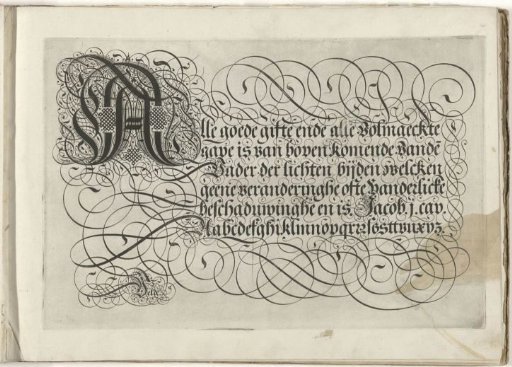 Alle goede gifte ende alle Volmaeckte
gave is van boven komende vande
Vader der lichten bijden welcken
geene veranderinghe ofte Vanderlicke
beschaduwinghe en is. Jacob. j. cap
Aabcdefghiklmnopqrrsosttvuwxyz.